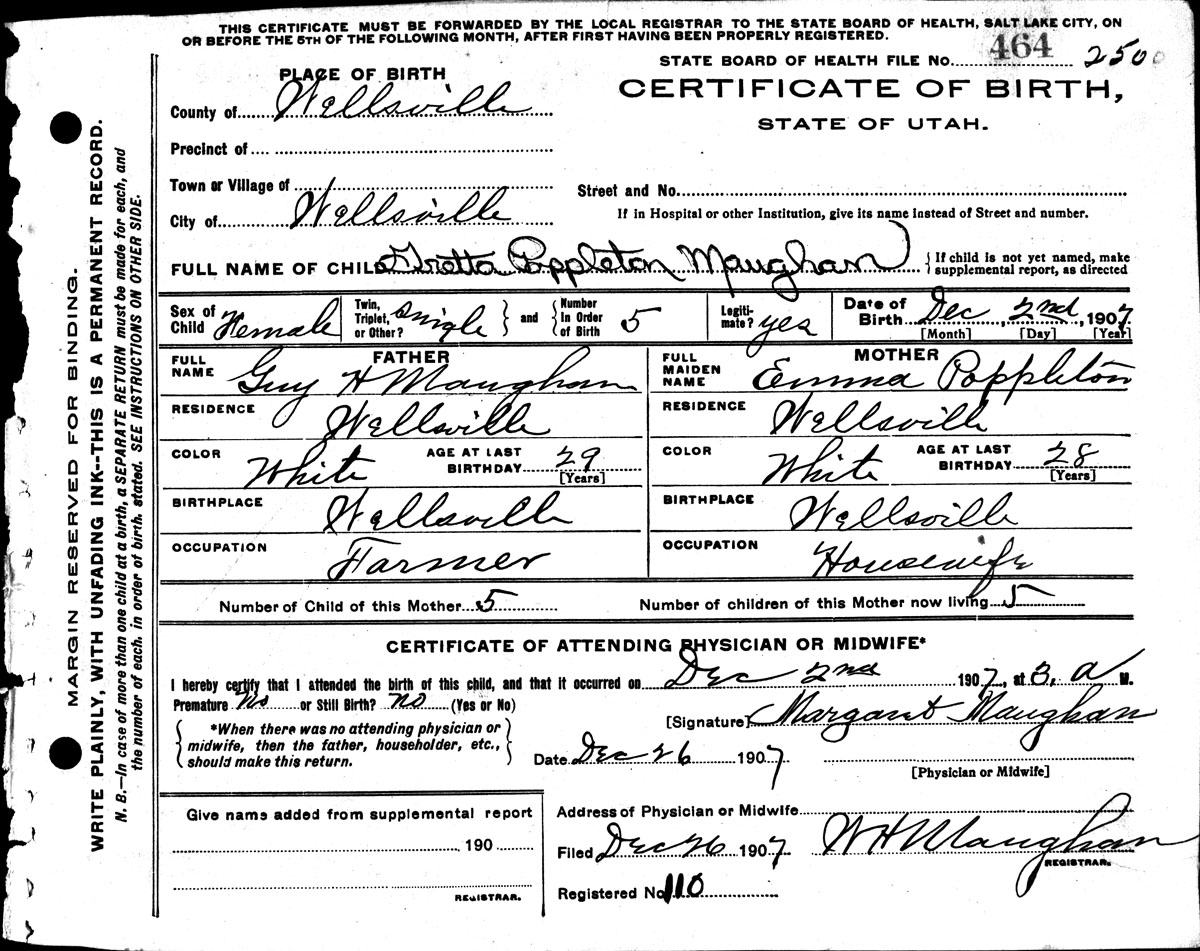 THIS CERTIFICATE MUST BE FORWARDED BY THE LOCAL REGISTRAR TO THE STATE BOARD OF HEALTH, SALT LAKE CITY, ON
OR BEFORE THE 5TH OF THE FOLLOWING MONTH, AFTER FIRST HAVING BEEN PROPERLY REGISTERED.
STATE BOARD OF HEALTH FILE No. 464 250
CERTIFICATE OF BIRTH,
STATE OF UTAH.
PLACE OF BIRTH
County of Wellsville
Precinct of
Town or Village of
City of Wellsville
Street and No.
If in Hospital or other Institution, give its name instead of Street and number.
FULL NAME OF CHILD Gretta Poppleton Maughan
If child is not yet named, make
supplemental report, as directed
Sex of Child Female
Twin, Triplet, or Other? Single and Number In Order of Birth 5
Legiti-mate? yes
Date of Birth Dec, 2nd, 1907
[Month] [Day] [Year]
FATHER
FULL NAME Guy H Maughan
RESIDENCE Wellsville
COLOR White AGE AT LAST BIRTHDAY 29
[Years]
BIRTHPLACE Wellsville
OCCUPATION Farmer
MOTHER
FULL MAIDEN NAME Emma Poppleton
RESIDENCE Wellsville
COLOR White AGE AT LAST BIRTHDAY 28
[Years]
BIRTHPLACE Wellsville
OCCUPATION Housewife
Number of Child of this Mother 5 Number of children of this Mother now living 5
CERTIFICATE OF ATTENDING PHYSICIAN OR MIDWIFE*
I hereby certify that I attended the birth of this child, and that it occurred on Dec 2nd 1907, at 3, a M.
Premature No or Still Birth? No (Yes or No)
*When there was no attending physician or
midwife, then the father, householder, etc.,
should make this return.
[Signature] Margaret Maughan
Date Dec 26 1907
[Physician or Midwife]
Give name added from supplemental report
190
REGISTRAR.
Address of Physician or Midwife
Filed Dec 26 1907 W H Maughan
REGISTRAR.
Registered No 110
MARGIN RESERVED FOR BINDING.
WRITE PLAINLY, WITH UNFADING INK--THIS IS A PERMANENT RECORD.
N. B.—In case of more than one child at a birth, a SEPARATE RETURN must be made for each, and
the number of each, in order of birth, stated. SEE INSTRUCTIONS ON OTHER SIDE.